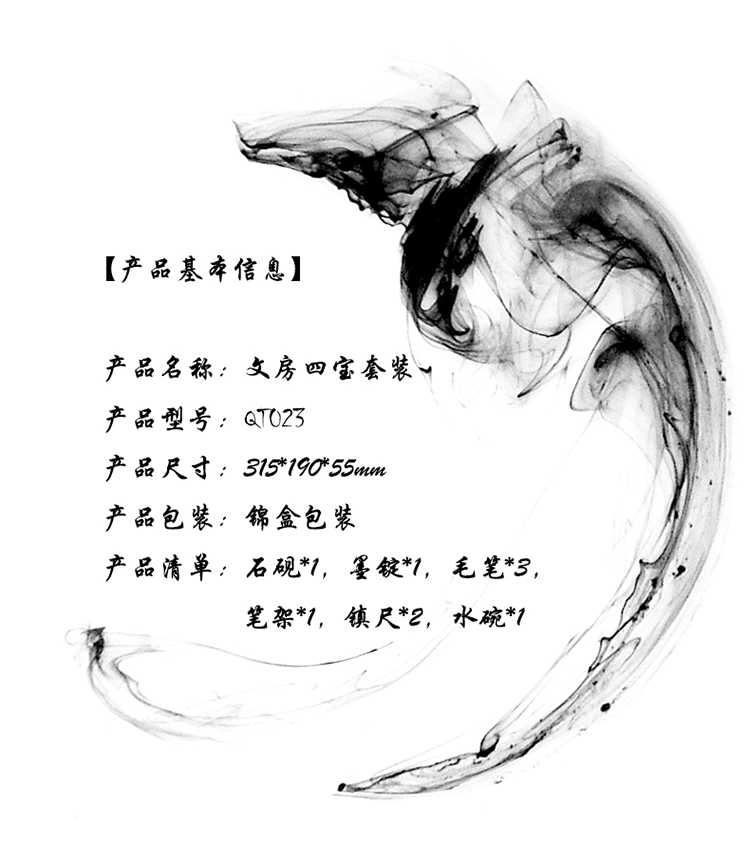 【产品基本信息】
产品名称：文房四宝套装
产品型号：QT023
产品尺寸：315*190*55mm
产品包装：锦盒包装
产品清单：石砚*1，墨锭*1，毛笔*3，
笔架*1，镇尺*2，水碗*1